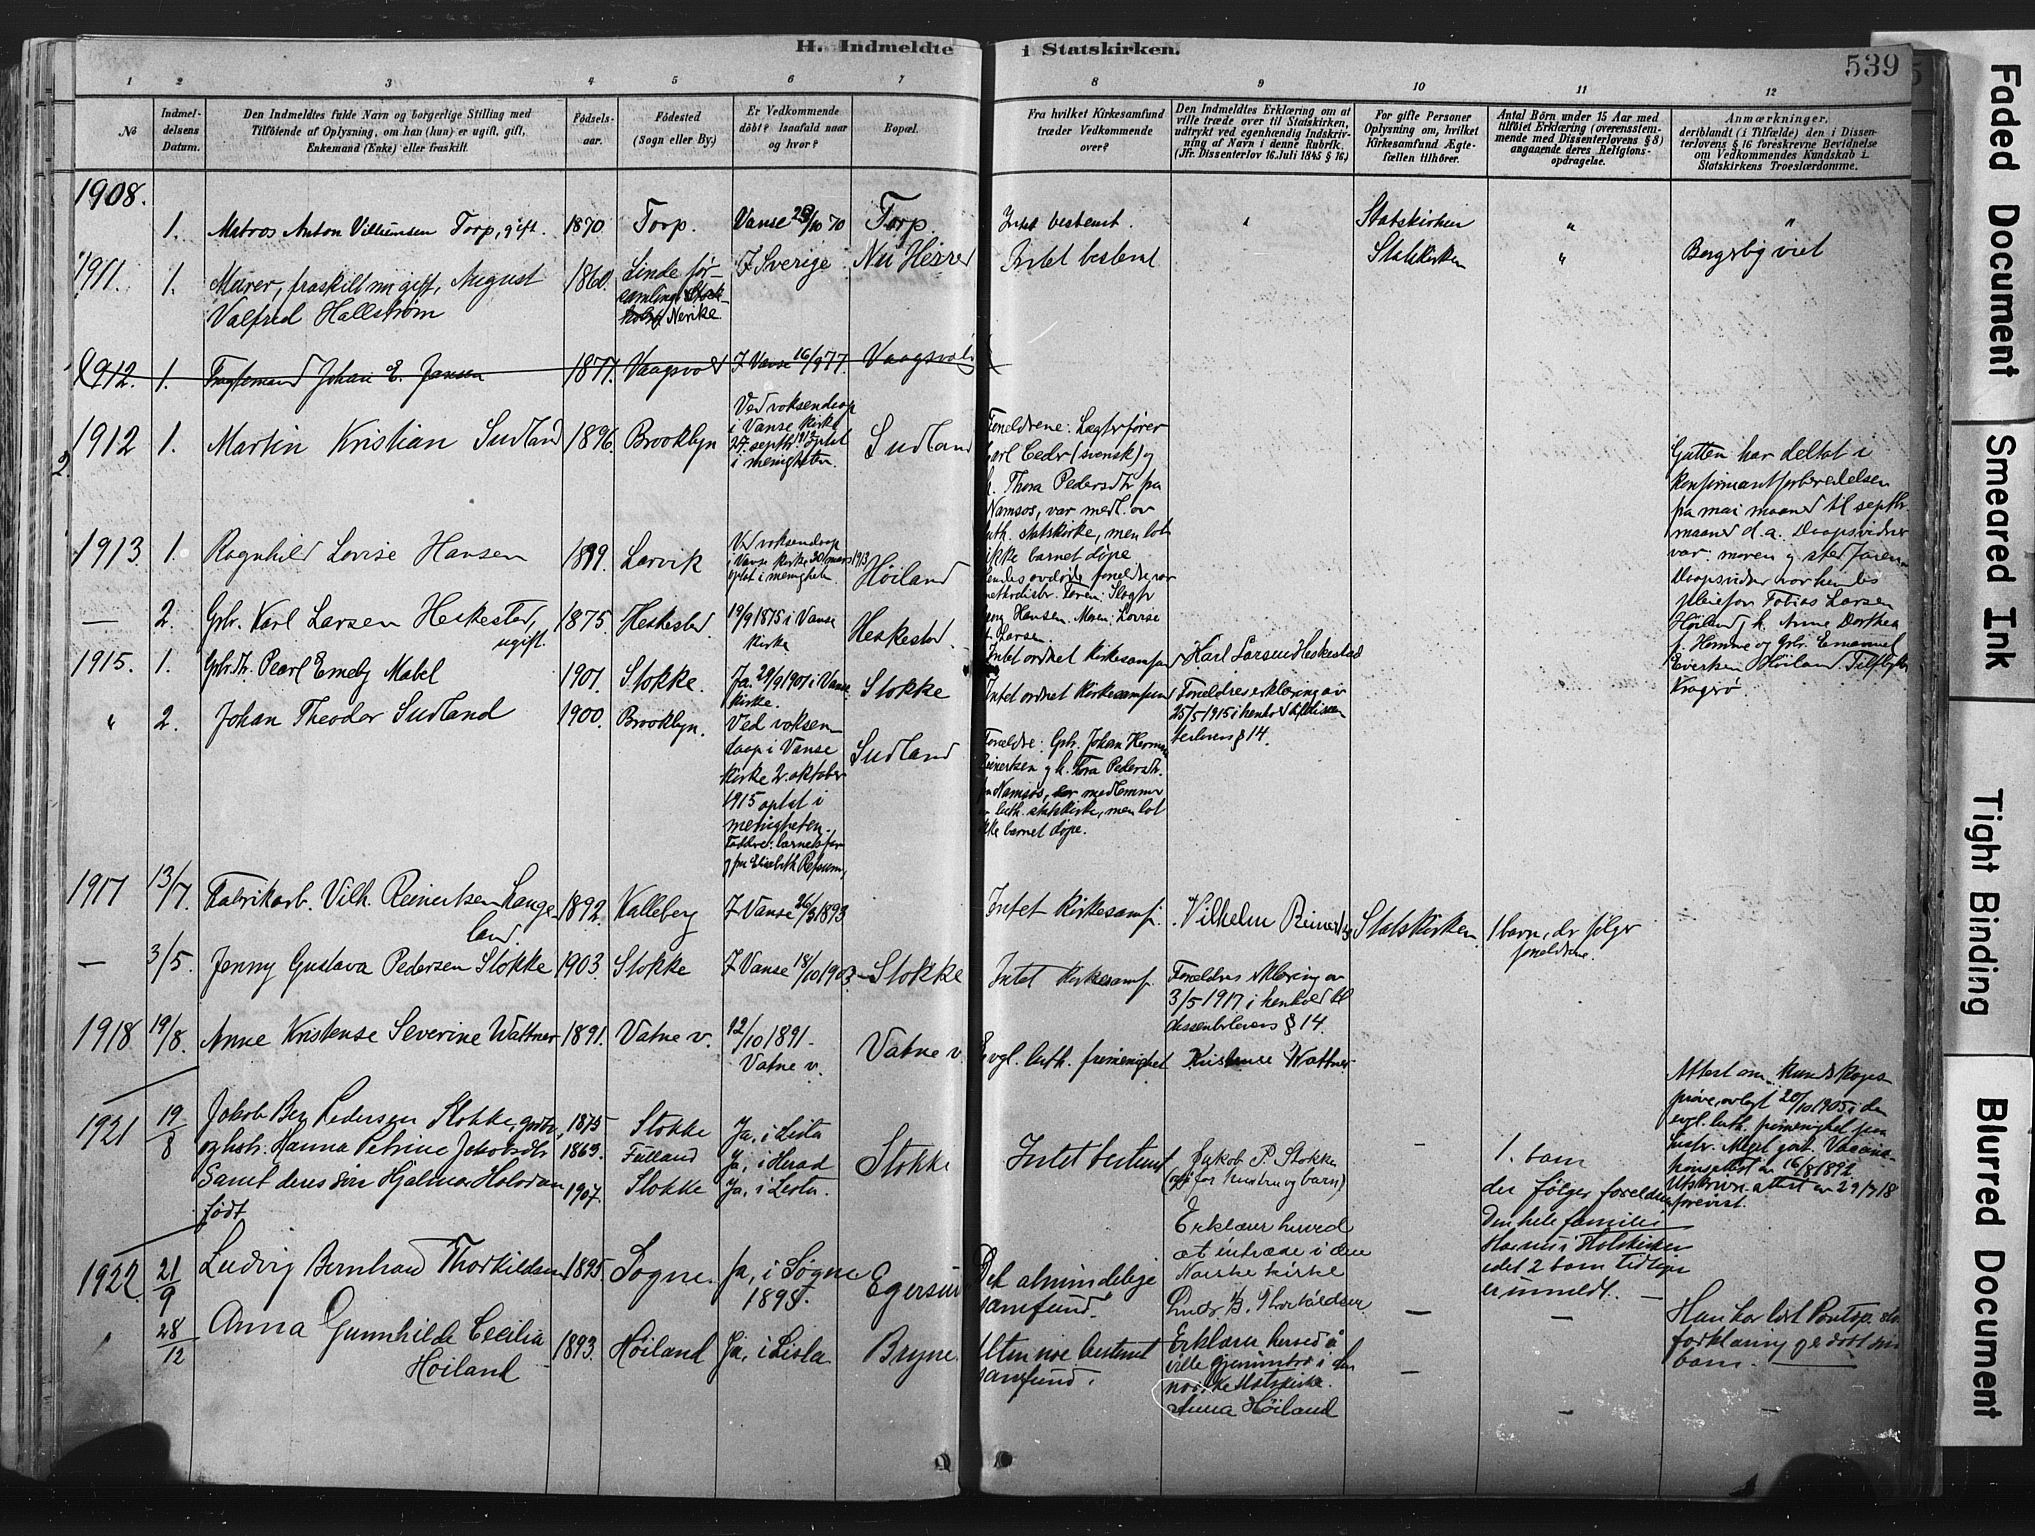 H. Indmeldte i Statskirken.
539
1 2 3 4 5 6 7 8 9 10 11 12
No
Indmel-
delsens
Datum.
Den Indmeldtes fulde Navn og borgerlige Stilling med
Tilföiende af Oplysning, om han (hun) er ugift, gift,
Enkemand (Enke) eller fraskilt.
Födsels-
aar.
Födested
(Sogn eller By.)
Er Vedkommende
döbt? Isaafald naar
og hvor?
Bopæl.
Fra hvilket Kirkesamfund
træder Vedkommende
over?
Den Indmeldtes Erklæring om at
ville træde over til Statskirken,
udtrykt ved egenhændig Indskriv-
ning af Navn i denne Rubrik.
(Jfr. Dissenterlov 16. Juli 1845 § 16.)
For gifte Personer
Oplysning om, hvilket
Kirkesamfund Ægte-
fællen tilhörer.
Antal Börn under 15 Aar med
tilföiet Erklæring (overensstem-
mende med Dissenterlovens § 8)
angaaende deres Religions-
opdragelse.
Anmærkninger,
deriblandt (i Tilfælde) den i Dissen-
terlovens § 16 foreskrevne Bevidnelse
om Vedkommendes Kundskab i
Statskirkens Troeslærdomme.
1908.
1. Matros Anton Villumsen Torp, gift. 1870. Torp. Vanse 23/10 70 Torp. Intet bestemt. " Statskirken " "
1911. 1. Murer, fraskilt nu gift, August
Valfred Hallstrøm
1860.
Linde för-
samling
Nerike.
I Sverige
Intet bestemt
Statskirken
"
1912. 1. Johan E. Jansen 1877. Vaagsvold I Vanse 16/9 77. Vaagsvold
1912 1. Martin Kristian Sudland 1896. Brooklyn
Ved voksendaap
i Vanse kirke
27. septbr. 1912 optat
i menigheten.
Sudland
Thora Pedersdtr fra
Namsos, var medl. av
luth. statskirke, men lot
ikke barnet døpe
Gutten har deltat i
konfirmantforberedelsen
fra mai maaned til septbr.
maaned d. a. Daapsvidner
var moren og
1913 1. Ragnhild Lovise Hansen 1899. Larvik
Ved voksendaap
i Vanse kirke 30 mars 1913
optat i menigheten
Høiland
Hansen. Moren: Lovise
Larsen.
Daapsvidner var hendes
pleiefar Tobias Larsen
Høiland, h. Anne Dorthea
f. Homme og Gbr. Emanuel
Høiland. Tilflyttet
Kragerø
— 2. Gbr. Karl Larsen Heskestad,
ugift.
1875. Heskestad.
19/9 1875 i Vanse
kirke
Heskestad
Intet ordnet kirkesamfund
Karl Larsen Heskestad
1915. 1. Gbr.dtr. Pearl Emely Mabel 1901. Stokke.
Ja. 29/9 1901 i Vanse
kirke.
Stokke
Intet ordnet kirkesamfund
Foreldres erklæring av
25/5 1915 i henhold til dissen
terlovens § 14.
" 2. Johan Theodor Sudland 1900. Brooklyn.
Ved voksen-
daap i Vanse
kirke 2. oktober
1915 optat i
menigheten.
Sudland
Foreldre: Gbr. Johan Herman
Reinertsen og h. Tora Pedersdtr.
fra Namsos, er medlemmer
av luth. statskirke, men lot
ikke barnet døpe.
1917 13/7. Fabrikarb. Vilh. Reinertsen Lange-
land.
1892. Kalleberg I Vanse 26/3 1893
Intet kirkesamf. Vilhelm Reinertsen Statskirken
1 barn, der følger
foreldrene.
— 3/5. Jenny Gustava Pedersen Stokke 1903. Stokke I Vanse 18/10 1903. Stokke Intet kirkesamf.
Foreldres erklæring av
3/5 1917 i henhold til
dissenterlovens § 14.
1918 19/8. Anne Kristense Severine Wattner 1891. Vatne v.
12/10 1891.
Vatne v.
Vatne v.
Evgl. luth. frimenighet Wattner
Attest om kundskaps-
prøve, avlagt 20/10 1905 i den
evgl. luth. frimenighet
Utskrivn. attest av 29/7 18
forevist.
1921 19/8
Jakob Pedersen Stokke, gbr. 1875 Stokke Ja, i Lista
og hstr. Hanna Petrine Jakobsdtr 1869. Ja, i Herad
Samt deres søn Hjalmar 1907. Stokke Ja, i Lista.
født
Stokke
Intet bestemt
Jakob P. Stokke
(og for hustru og barn)
—
1. barn
der følger foreldrene
Den hele familie
2 barn tidligere
er innmeldt. —
1922. 21/9 Ludvig Bernhard Thorkildsen 1895. Sogne.
Ja, i Søgne
1895.
Egersund
Det almindelige
samfund.
Erklærer herved
at indtræde i den
Norske kirke
Ludv. B. Thorkildsen
— —
" 28/12 Anna Gunnhilde Cecilia
Høiland
1893. Høiland Ja, i Lista Bryne.
samfund.
Erklærer herved å
ville i den
norske statskirke.
Anna Høiland
— — —
Faded Document
Smeared Ink
Tight Binding
Blurred Document